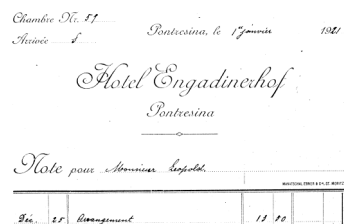 Chambre Nr. 51
Arrivée 5
Pontresina, le 1er janvier 1921
Hotel Engadinerhof
Pontresina
Note pour Monsieur Leopold.
Déc. 25 Arrangement 13 80